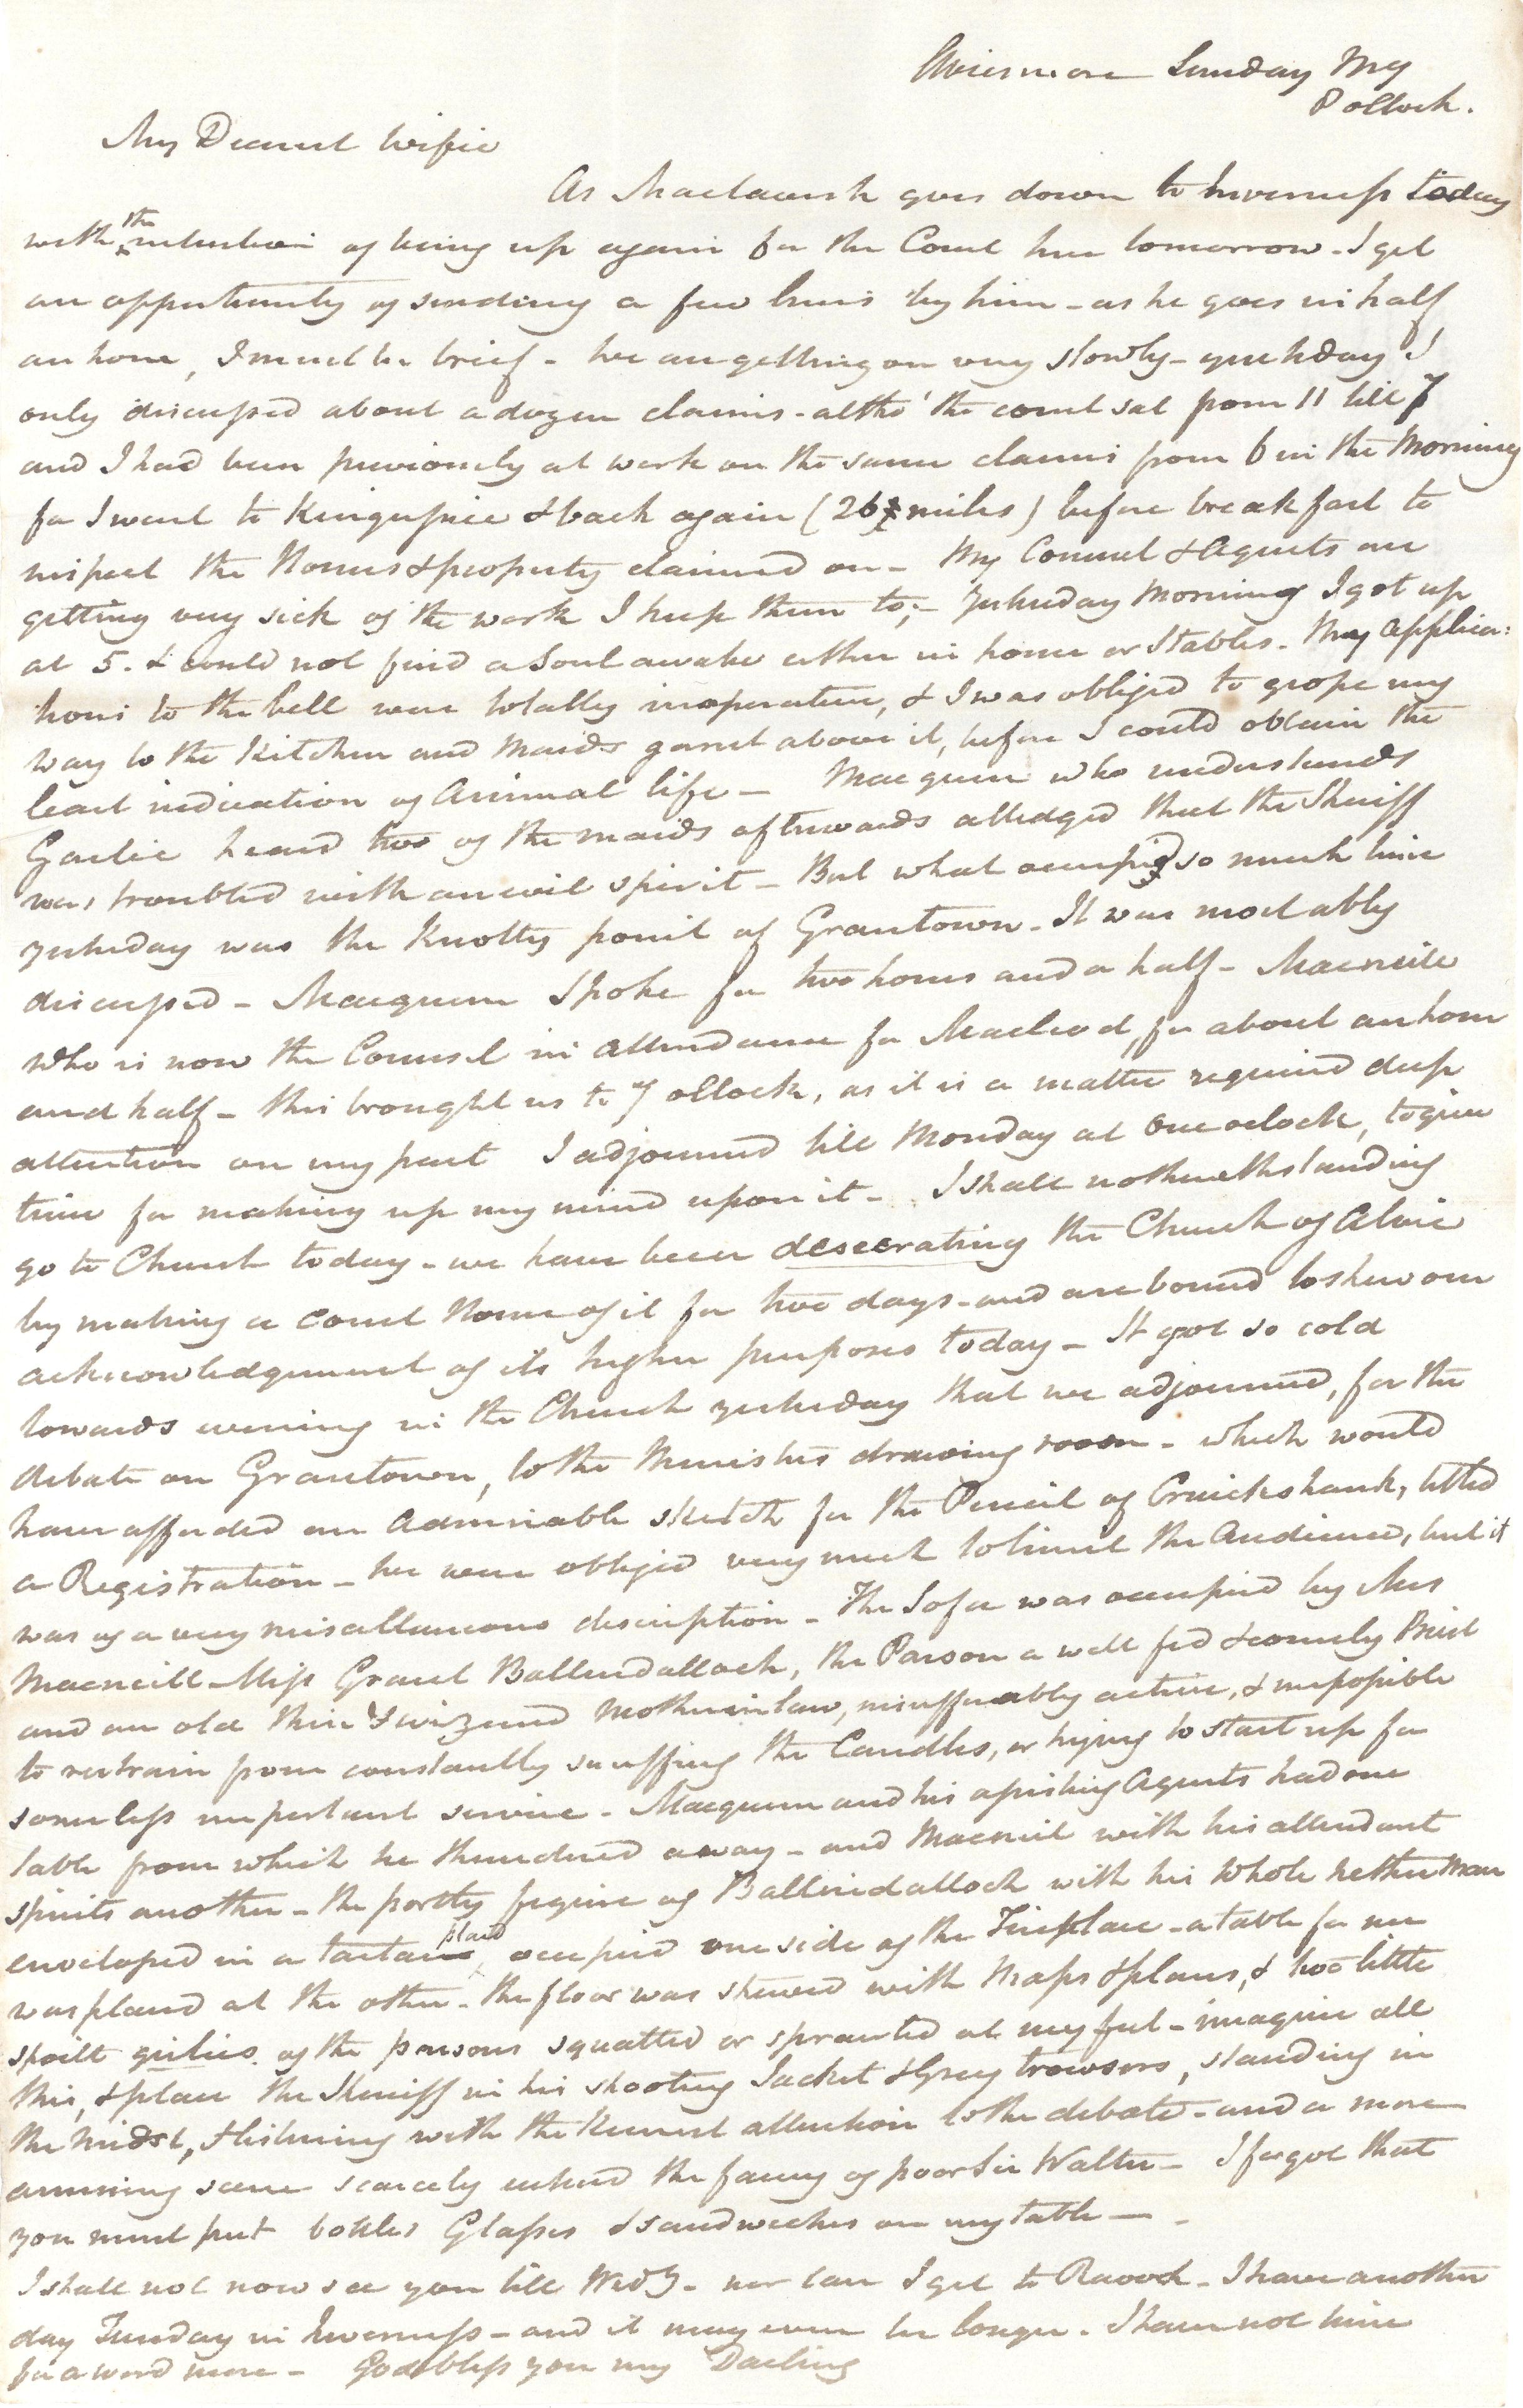 Aviemore Sunday Mg
8 oClock.
My Dearest Wifie
As Mactavish goes down to Inverness today
with the intention of being up again for the Court here tomorrow. I get
an opportunity of sending a few lines by him - as he goes in half
an hour, I must be brief - We are getting on very slowly - yesterday I
only discussed about a dozen claims - altho' the court sat from 11 till 7
and I had been previously at work on the same claims from 6 in the Morning
for I went to Kingussie & back again (26 miles) before breakfast to
inspect the Houses & property claimed on - My Counsel & Agents are
getting very sick of the work I keep them to; - Yesterday Morning I got up
at 5. & could not find a Soul awake either in house or Stables. My applica:
tions to the bell were totally inoperative, & I was obliged to grope my
way to the Kitchen and Maids garret above it, before I could obtain the
least indication of Animal life - Macqueen who understands
Gaelic heard two of the maids afterwards alledged that the Sheriff
was troubled with an evil spirit - But what occupied so much time
yesterday was the Knotty point of Grantown. It was most ably
discussed - Macqueen Spoke for two hours and a half - Macneile
who is now the Counsel in attendance for Macleod, for about an hour
and half - this brought us to 7 oClock, as it is a matter required deep
attention on my part I adjourned till Monday at One oclock, to give
time for making up my mind upon it - I shall nothwithstanding
go to Church today - we have been desecrating the Church of Alvie
by making a Court House of it for two days - and are bound to shew our
acknowledgement of its higher purposes today - It got so cold
towards evening in the Church yesterday that we adjourned, for the
debate on Grantown, to the Ministers drawing room - which would
have afforded an Admirable sketch for the Pencil of Cruickshank, titled
a Registration - We were obliged very much to limit the Audience, but it
was of a very misallaneous description - The Sofa was occupied by Mrs
Macneill - Miss Grant Ballendalloch, the Parson a well fed & comely Priest
and an old thin & wizened Mother in law, insufferably active, & impossible
to restrain from constantly snuffing the Candles, or trying to start up for
some less important service - Macqueen and his Agents had one
table from which he thundered away - and Macneil with his attendant
spirits another - the portly figure of Ballindalloch with his whole nether Man
enveloped in a tartan plaid occupied one side of the Fireplace - a table for me
was placed at the other - the floor was strewed with Maps & plans, & two little
spoilt gillies of the parsons squatted or sprawled at my feet - imagine all
this, & place the Sheriff in his shooting Jacket & Grey trowsers, standing in
the midst, & listening with the keenest attention to the debate - and a more
amusing scene scarcely entered the fancy of poor Sir Walter - I forgot that
you must put bottles Glasses & sandwiches on my table -
I shall not now see you till Wedy. nor can I get to - I have another
day Tuesday in Inverness - and it may even be longer. I have not time
for a word more - God bless you my Darling